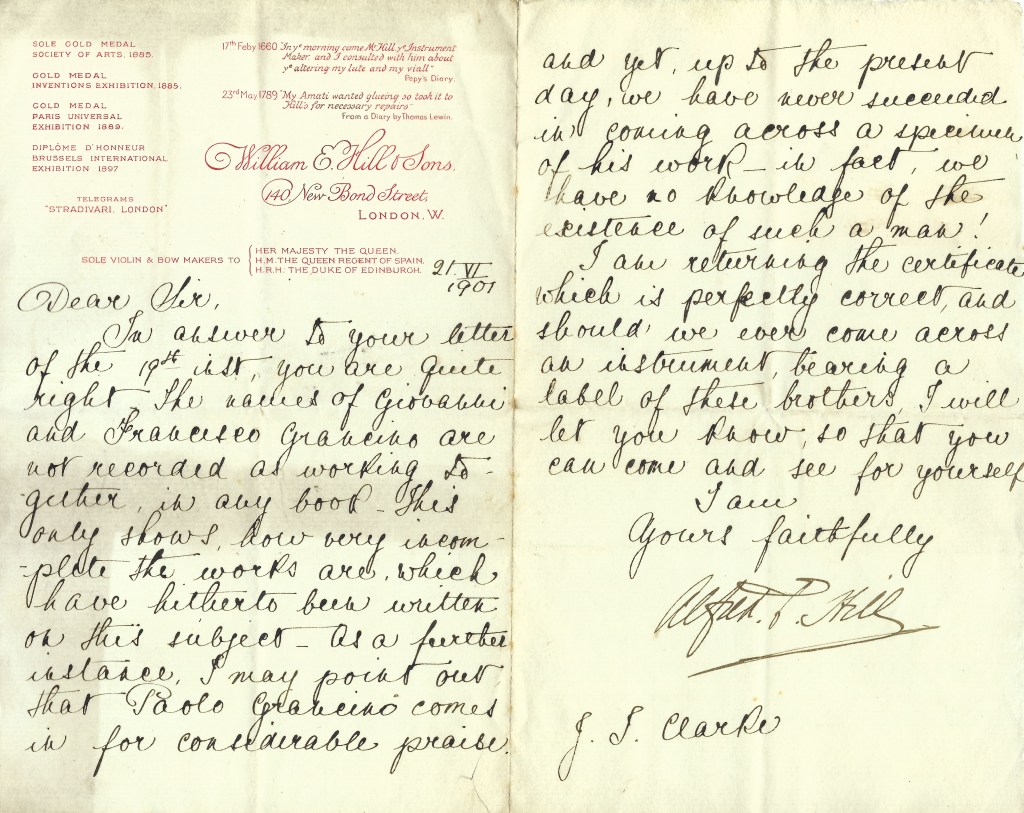 SOLE GOLD MEDAL
SOCIETY OF ARTS, 1885.
GOLD MEDAL
INVENTIONS EXHIBITION, 1885.
GOLD MEDAL
PARIS UNIVERSAL
EXHIBITION 1889.
DIPLÔME D'HONNEUR
BRUSSELS INTERNATIONAL
EXHIBITION 1897
TELEGRAMS
"STRADIVARI, LONDON"
17th Feby 1660 "In ye morning came Mr Hill ye Instrument
Maker, and I consulted with him about
ye altering my lute and my viall"
Pepy's Diary.
23rd May 1789 "My Amati wanted glueing so took it to
Hill's for necessary repairs"
From a Diary by Thomas Lewin.
William E. Hill & Sons.
140, New Bond Street,
LONDON, W.
SOLE VIOLIN & BOW MAKERS TO
HER MAJESTY THE QUEEN.
H.M. THE QUEEN REGENT OF SPAIN.
H.R.H. THE DUKE OF EDINBURGH.
21.VI
1901
Dear Sir,
In answer to your letter
of the 19st inst, you are quite
right. The names of Giovanni
and Francisco Grancino are
not recorded as working to-
gether, in any book - This
only shows, how very incom-
-plete the works are, which
have hitherto been written
on this subject - As a further
instance, I may point out,
that Paolo Grancino comes
in for considerable praise.
and yet, up to the present
day, we have never succeeded
in coming across a specimen
of his work - in fact, we
have no knowledge of the
existence of such a man!
I am returning the certificate
which is perfectly correct, and
should we ever come across
an instrument, bearing a
label of these brothers, I will
let you know, so that you
can come and see for yourself
I am
Yours faithfully
Alfred. E. Hill
J. S. Clarke